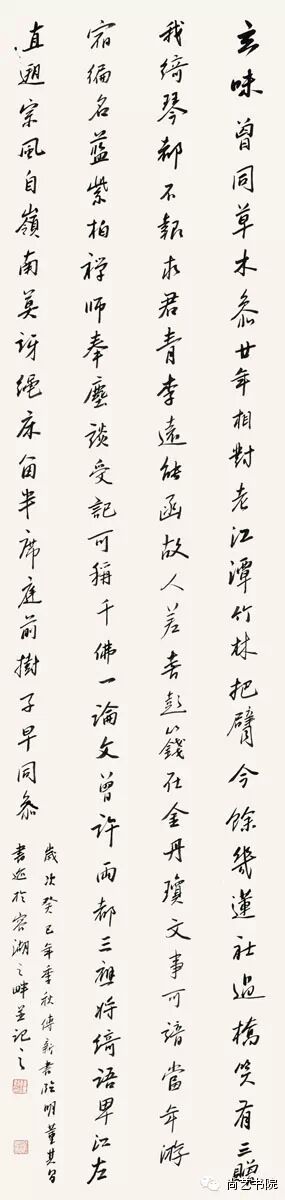 玄味曾同草木參廿年相對老江潭竹林把臂今餘幾蓮社過橋笑有三贈
我綺琴都不報求君青李遠能函故人差喜彭籛在金丹瓊文事可諳當年游
宿徧名藍紫柏禅師奉麈談受記可稱千佛一論文曾许两都三祖將綺語畀江左
直遡宗風自嶺南莫訝绳床留半席庭前樹子早同參
歲次癸巳年季秋傳新書院明董其昌
書迹於容湖之畔并記之
尚艺书院